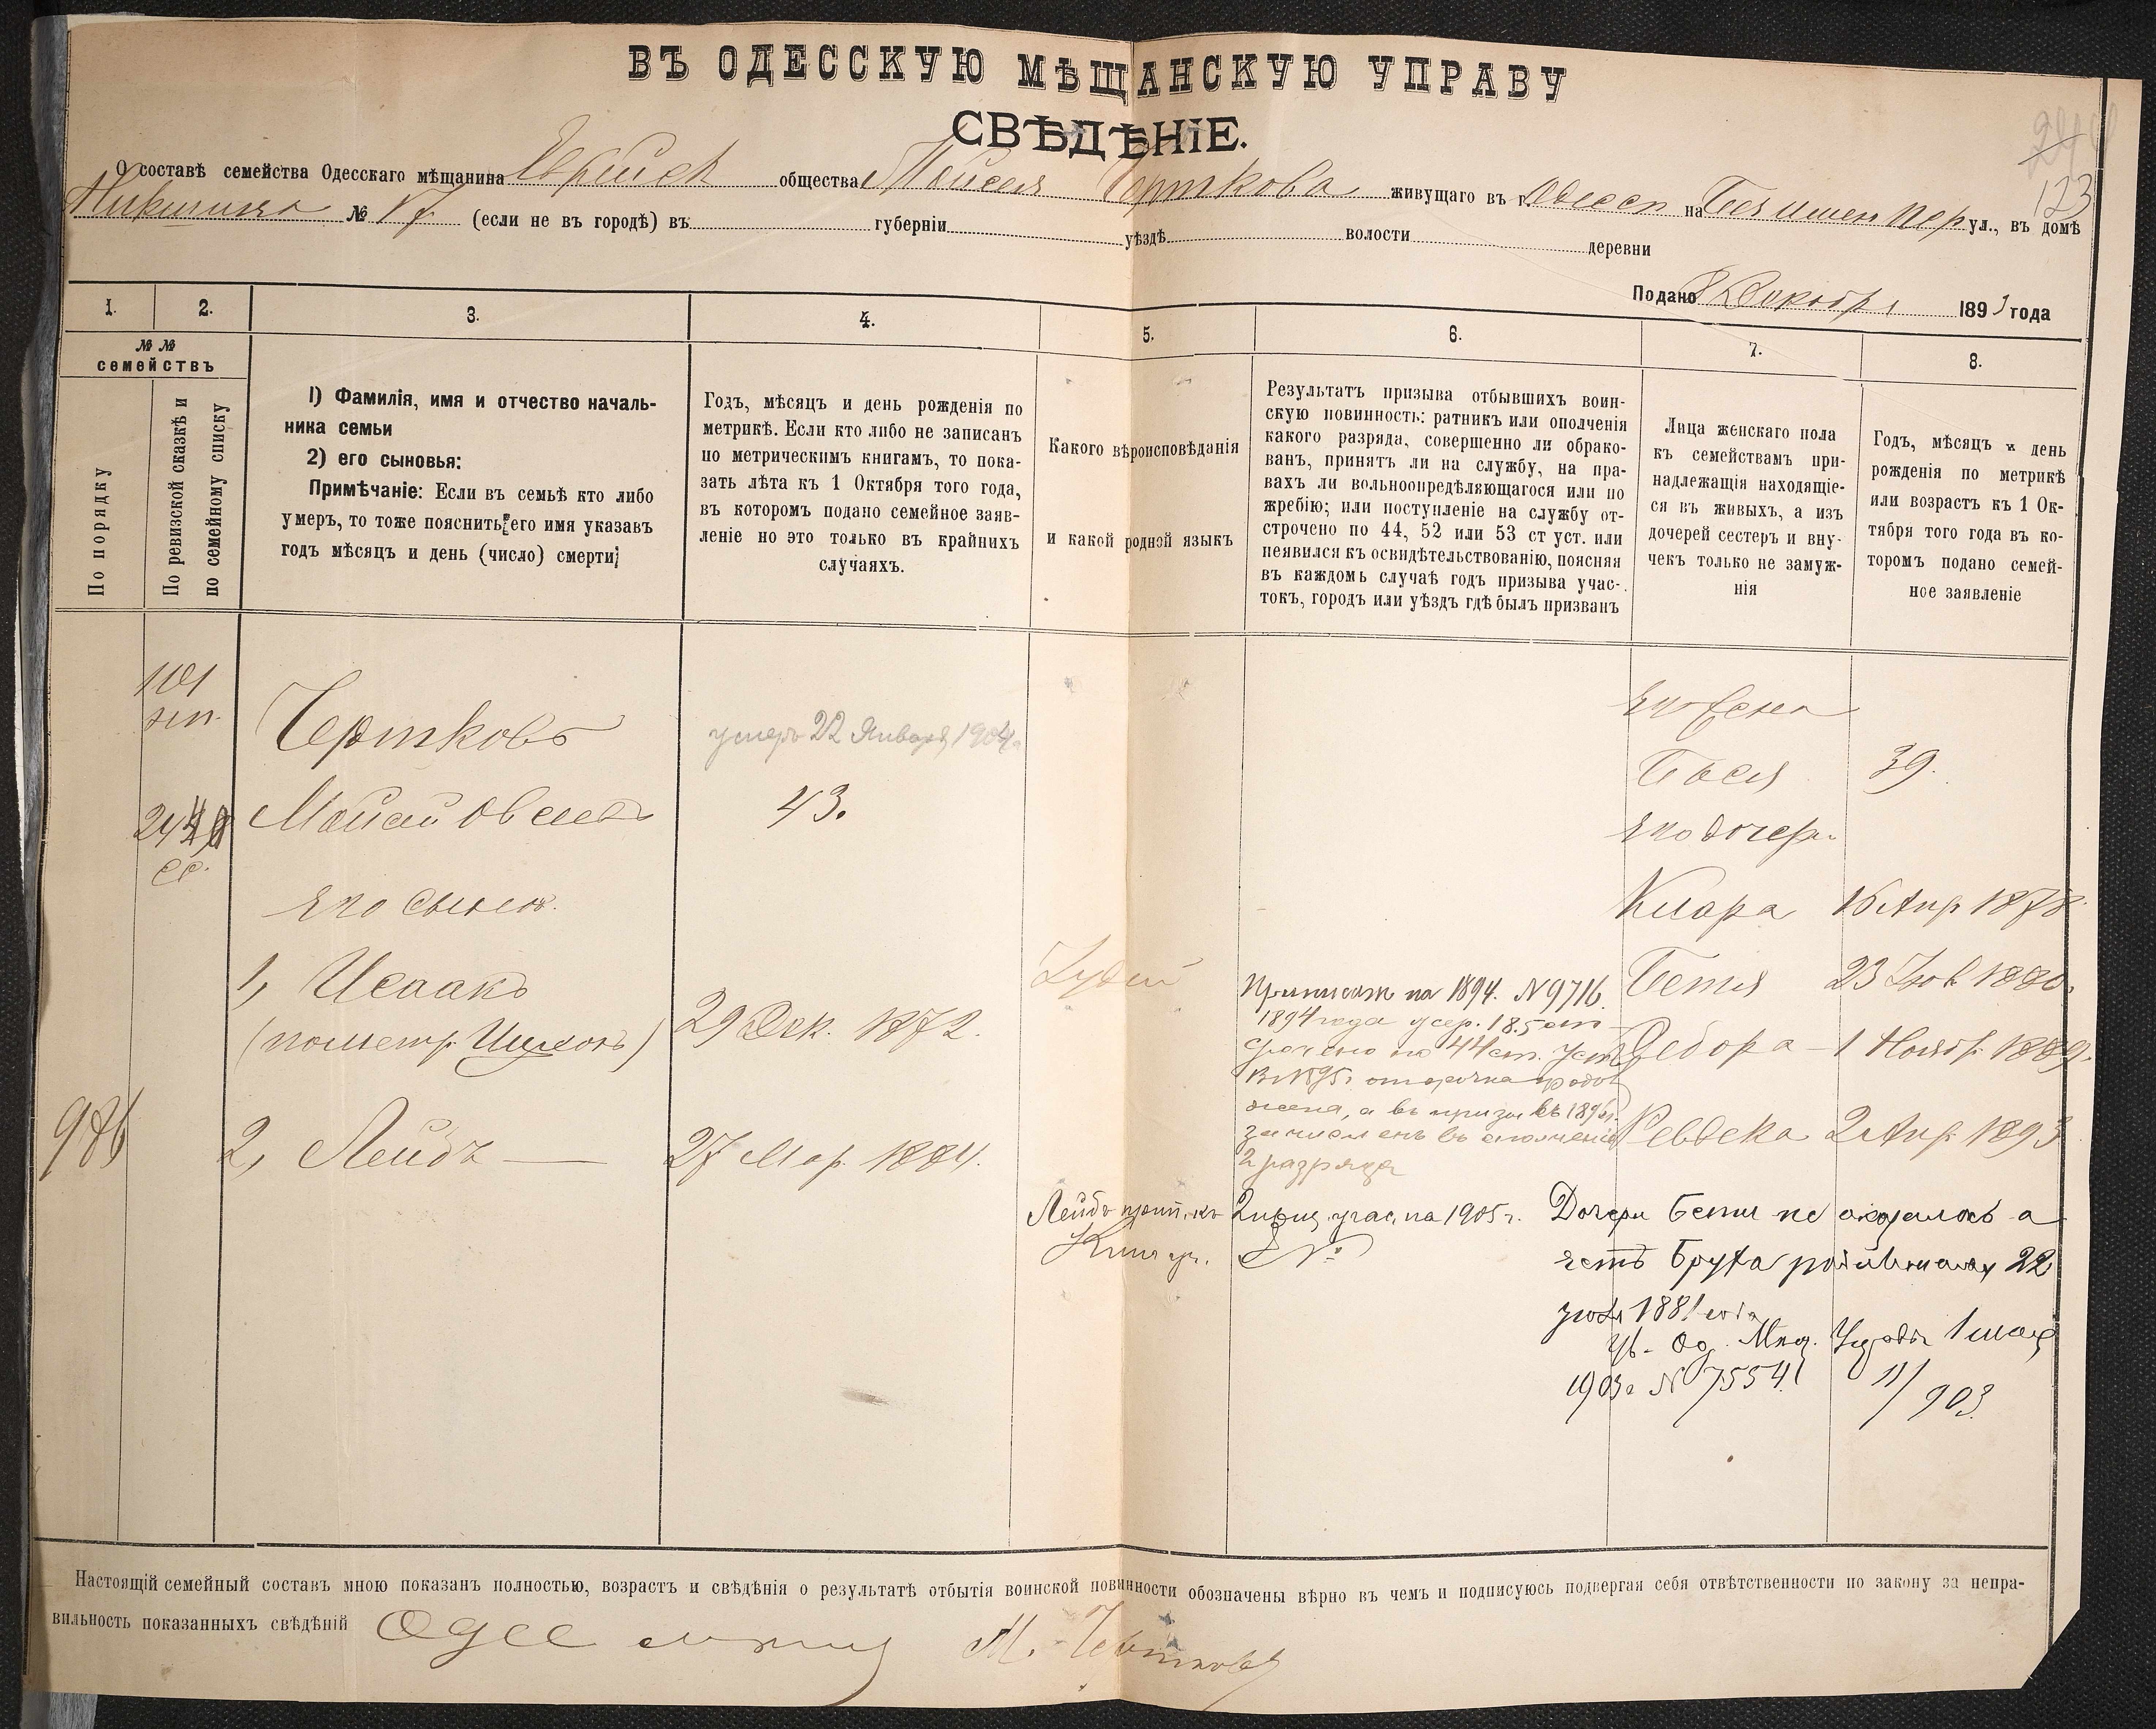 ВЪ ОДЕССКУЮ МѢЩАНСКУЮ УПРАВУ
СВѢДѢНІЕ.
О составѣ семейства Одесскаго мѣщанина Еврейск общества Мойсея Черткова живущаго въ г. Одессѣ на Безимен пер ул., въ домѣ
№ 17 (если не въ городѣ) въ губерніи уѣздѣ волости деревни
123
Подано 8 Декабря 1893 года
1.
2.
3.
4.
5.
6.
7.
8.
№ №
семействъ
По порядку
По ревизской сказкѣ и
по семейному списку
1) Фамилія, имя и отчество началь-
ника семьи
2) его сыновья:
Примѣчаніе: Если въ семьѣ кто либо
умеръ, то тоже пояснить его имя указавъ
годъ мѣсяцъ и день (число) смерти
Годъ, мѣсяцъ и день рожденія по
метрикѣ. Если кто либо не записанъ
по метрическимъ книгамъ, то пока-
зать лѣта къ 1 Октября того года,
въ которомъ подано семейное заяв-
леніе но это только въ крайнихъ
случаяхъ.
Какого вѣроисповѣданія
и какой родной языкъ
Результатъ призыва отбывшихъ воин-
скую повинность: ратникъ или ополченія
какого разряда, совершенно ли обрако-
ванъ, принятъ ли на службу, на пра-
вахъ ли вольноопредѣляющагося или по
жребію; или поступленіе на службу от-
строчено по 44, 52 или 53 ст уст. или
неявился къ освидѣтельствованію, поясняя
въ каждомъ случаѣ годъ призыва учас-
токъ, городъ или уѣздъ гдѣ былъ призванъ
Лица женскаго пола
къ семействамъ при-
надлежащія находящіе-
ся въ живыхъ, а изъ
дочерей сестеръ и вну-
чекъ только не замуж-
нія
Годъ, мѣсяцъ и день
рожденія по метрикѣ
или возрастъ къ 1 Ок-
тября того года въ ко-
торомъ подано семей-
ное заявленіе
101
Чертковъ
умеръ 22 Января 1904
его жена
Мойсей
43.
Бася 39.
его дочери
его сыновья
Клара 16 Апр 1878
1, Исаакъ
29 Дек. 1872.
Іудей
Приписан на 1894. №9716.
1894 года отс-
рочено по 44 ст. Уст
Въ 1895г отсрочка продол
жена, а въ призыв 1896г.
зачисленъ въ ополченіе
2 разряда
Бетя 23 1880.
Дебора 1 Ноябр. 1889.
986
2, Лейбъ
27 Мар. 1884.
Ревека 2 Апр. 1893
Лейбъ прип. къ 2 приз. учас. на 1905 г.
№
Дочери Бети не оказалось а
есть Бруха родившаяся 22
1881 года
Ув. Од. Мѣщ. Управы 1
1903г №7554
11/903
Настоящій семейный составъ мною показанъ полностью, возрастъ и свѣдѣнія о результатѣ отбытія воинской повинности обозначены вѣрно въ чемъ и подписуюсь подвергая себя отвѣтственности по закону за непра-
вильность показанныхъ свѣдѣній Одес М. Чертковъ